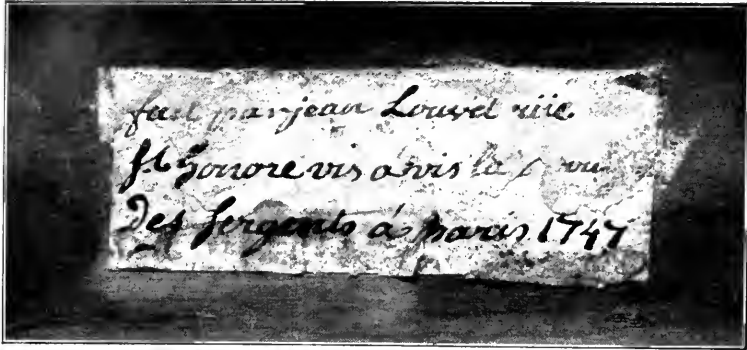 fait par jean Louvet rüe
st honore vis a vis la
Des sergents a paris 1747